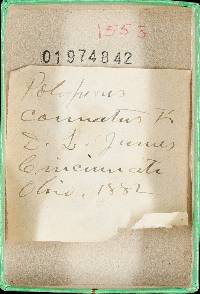 1553
01974842
Polyporus
connatus Fr
D. L. James
Cincinnati
Ohio, 1882